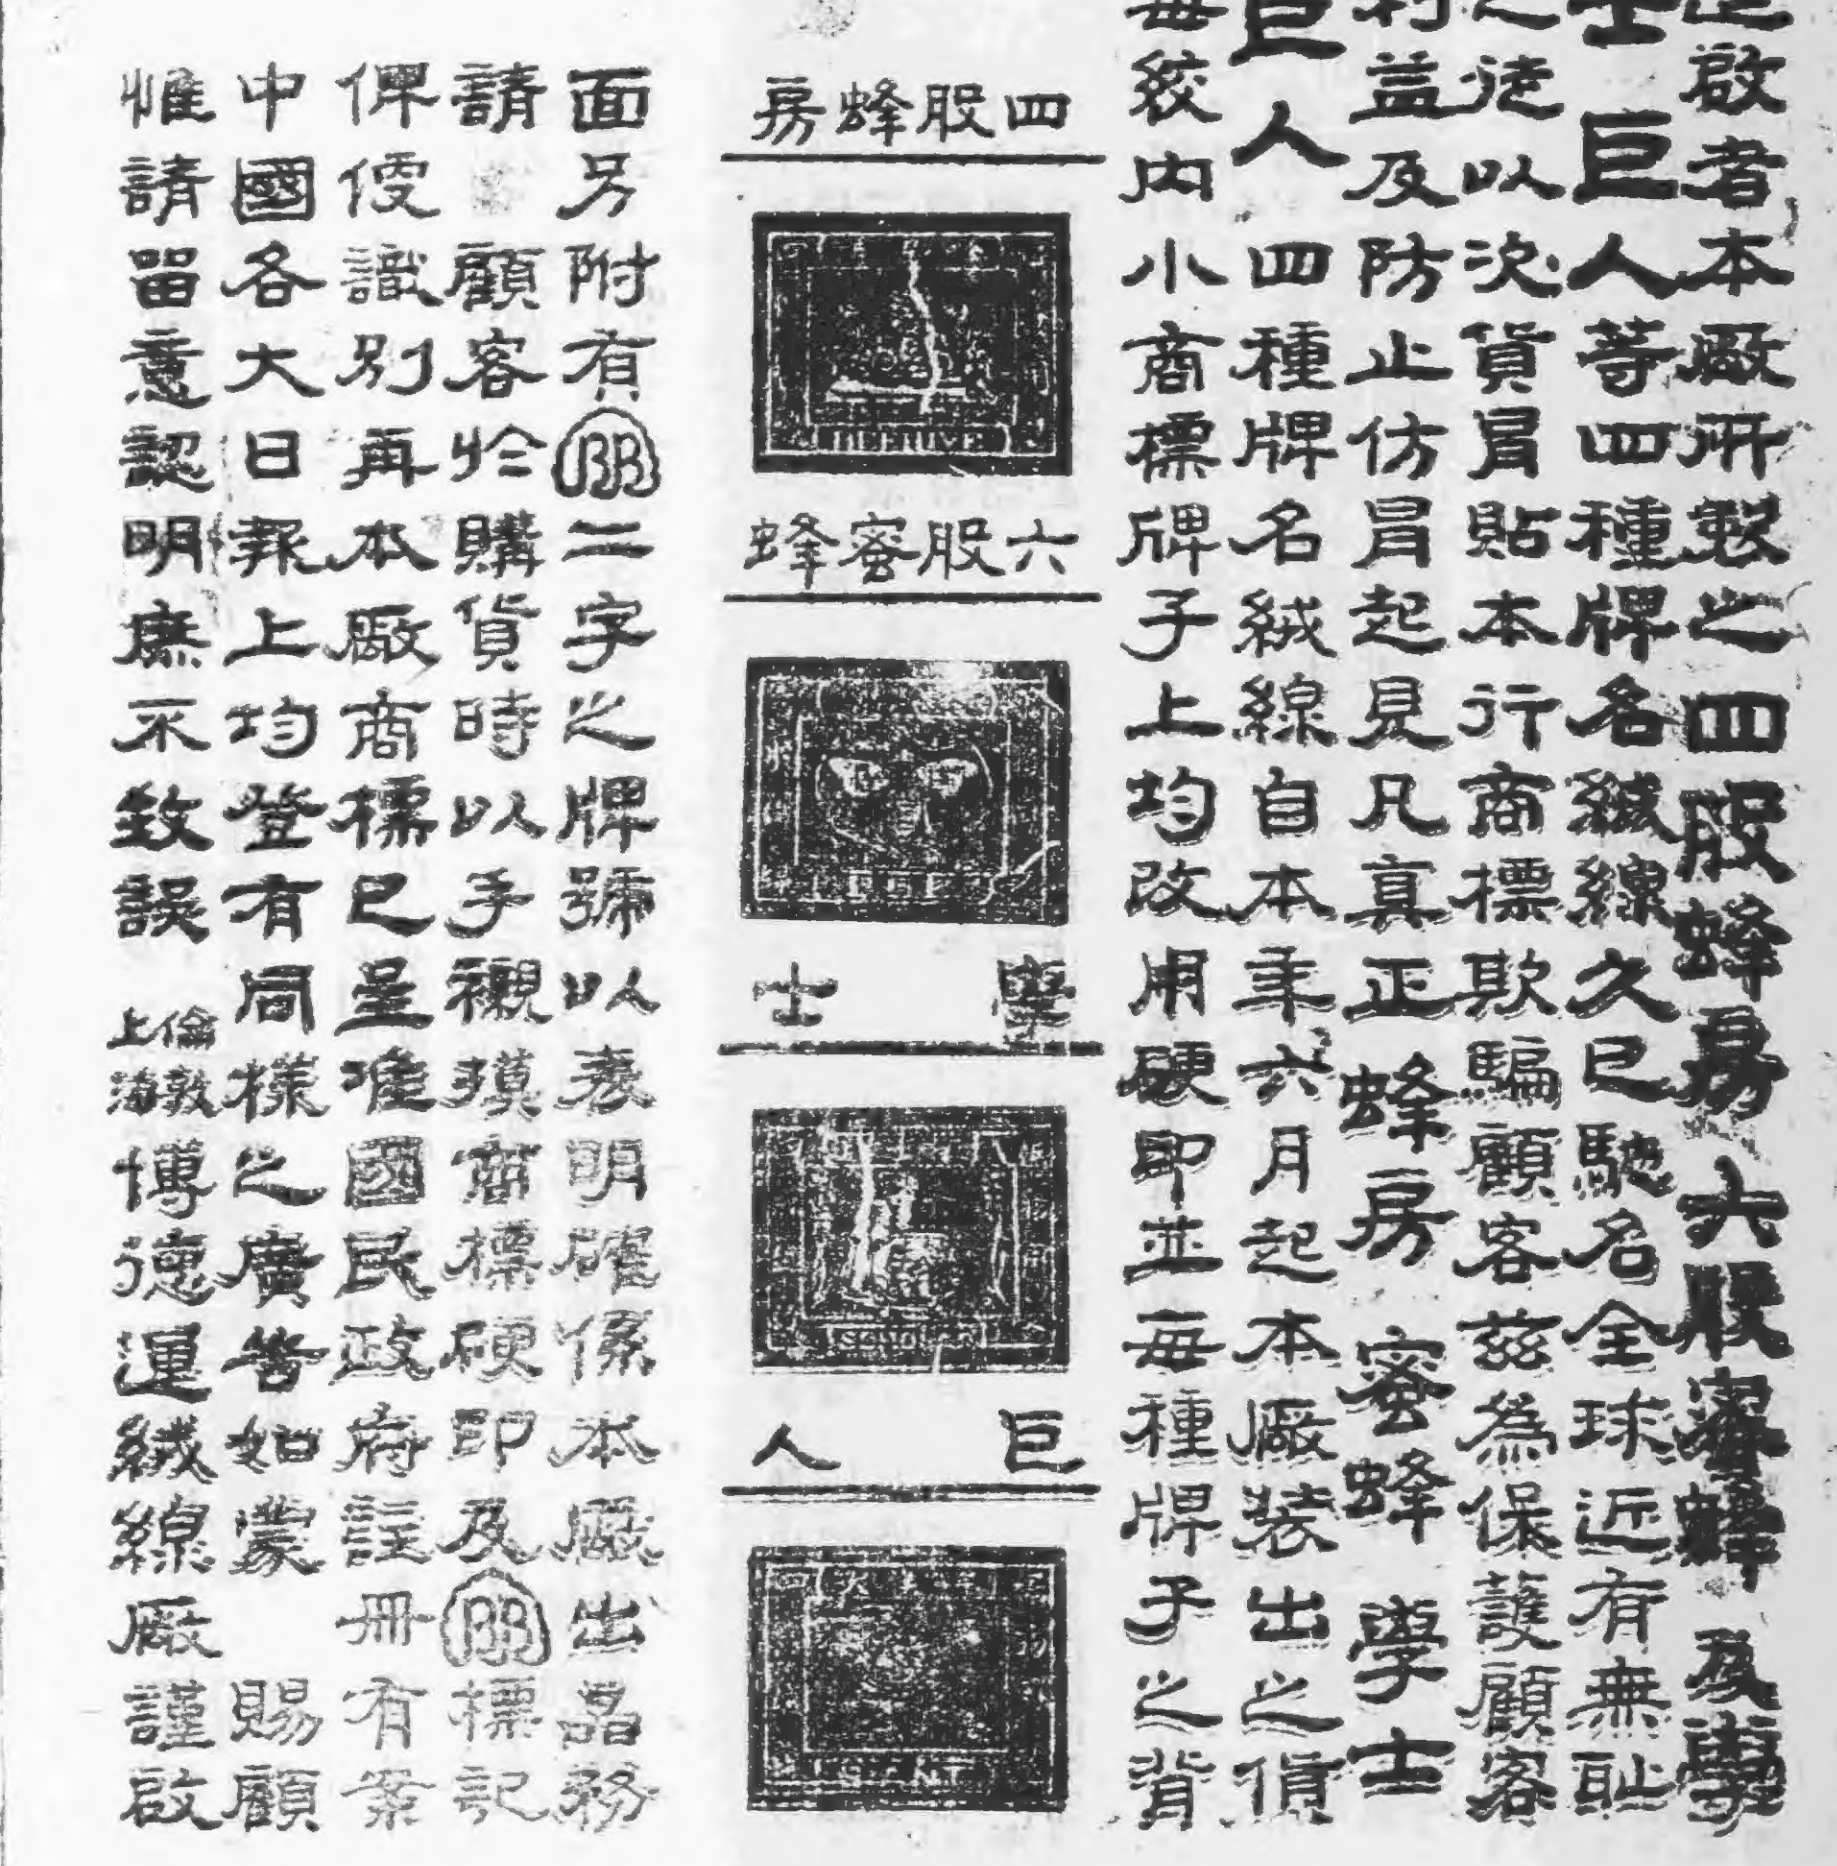 啟者本廠所製之四股蜂房六股蜜蜂及學
士巨人等四種牌名絨線久已馳名全球近有無恥
之徒以次貨冒貼本行商標欺騙顧客茲為保護顧客
利益及防止仿冒起見凡真正蜂房蜜蜂學士
巨人四種牌名絨線自本年六月起本廠裝出之貨
每絞內小商標牌子上均改用硬印並每種牌子之背
四股蜂房
BEEHIVE
六股蜜蜂
學士
巨人
面另附有BB二字之牌號以表明確係本廠出品務
請顧客於購貨時以手襯摸商標硬印及BB標記
俾便識別再本廠商標已呈准國民政府註冊有案
中國各大日報上均登有同樣之廣告如蒙賜顧
惟請留意認明庶不致誤
倫敦
上海
博德運絨線廠謹啟